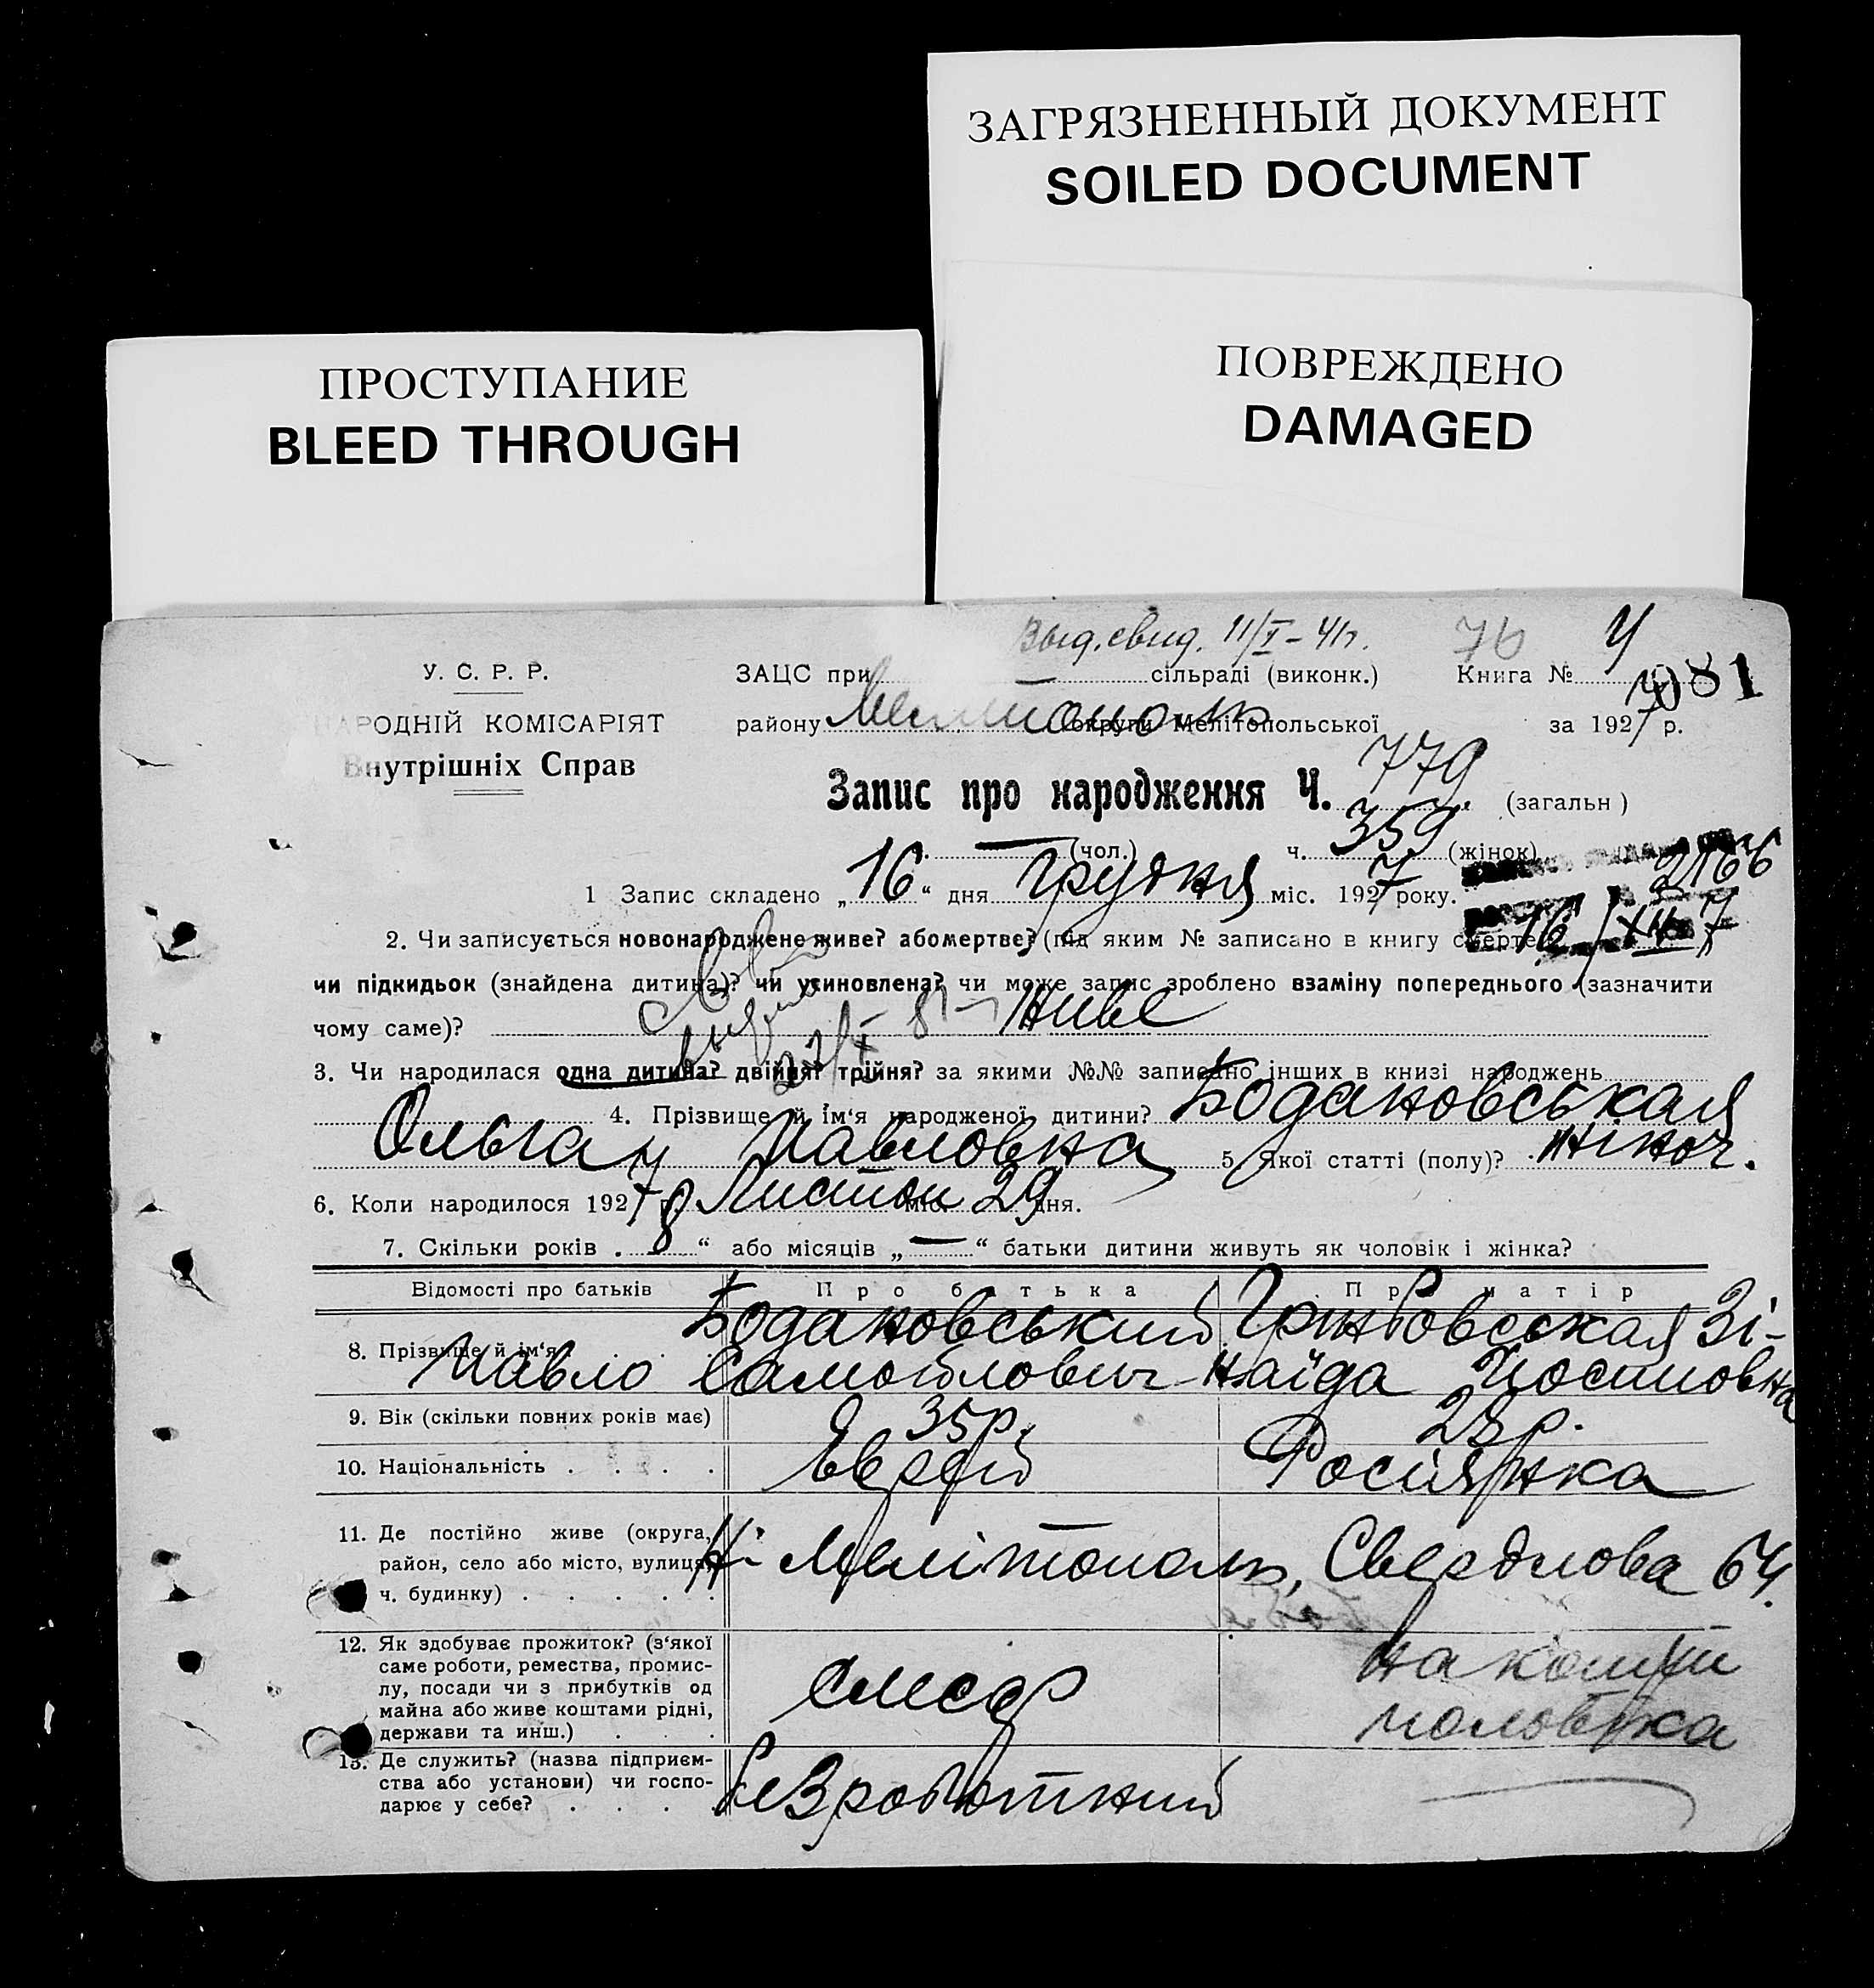 ЗАГРЯЗНЕННЫЙ ДОКУМЕНТ
SOILED DOCUMENT
ПОВРЕЖДЕНО
DAMAGED
ПРОСТУПАНИЕ
BLEED THROUGH
Выд. свид. 11/I-41г. 76 4
У. С. Р. Р. ЗАЦС при сільраді (виконк.) Книга № 081
НАРОДНІЙ КОМІСАРІЯТ району Мелитополь округи Мелітопольської за 1927 р.
Внутрішніх Справ
Запис про народження Ч. 779 (загальн)
ч. — (чол.) ч. 359 (жінок)
2166
1 Запис складено „16“ дня Грудня міс. 1927 року.
16/XII 7
2. Чи записується новонароджене живе? або мертве? (під яким № записано в книгу смерте
чи підкидьок (знайдена дитина)? чи усиновлена? чи може запис зроблено взаміну попереднього (зазначити
чому саме)? живе
3. Чи народилася одна дитина? двійня? трійня? за якими №№ записано інших в книзі народжень
4. Прізвище й ім‘я народженої дитини? Бодановськая
Ольга Павловна 5. Якої статті (полу)? жіноч.
6. Коли народилося 1927 р. Листоп міс. 29 дня.
7. Скільки років „8“ або місяців „—“ батьки дитини живуть як чоловік і жінка?
Відомості про батьків Про батька Про матір
8. Прізвище й ім‘я Бодановський Павло Самойлович Зінаїда
9. Вік (скільки повних років має) 35р. 28р.
10. Національність . . . . Еврей Росіянка
11. Де постійно живе (округа,
район, село або місто, вулиця, м. Мелітополь, Свердлова 64.
ч. будинку) . . . . .
12. Як здобуває прожиток? (з‘якої
саме роботи, ремества, промис-
лу, посади чи з прибутків од
майна або живе коштами рідні,
держави та инш.) . . .
слесар на кошти чоловіка
13. Де служить? (назва підприєм-
ства або установи) чи госпо-
дарює у себе? . . . .
безроботний